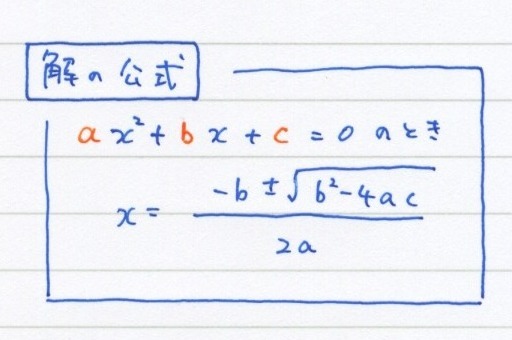 解の公式
ax²+bx+c=0のとき
x = (-b±√(b²-4ac))/(2a)